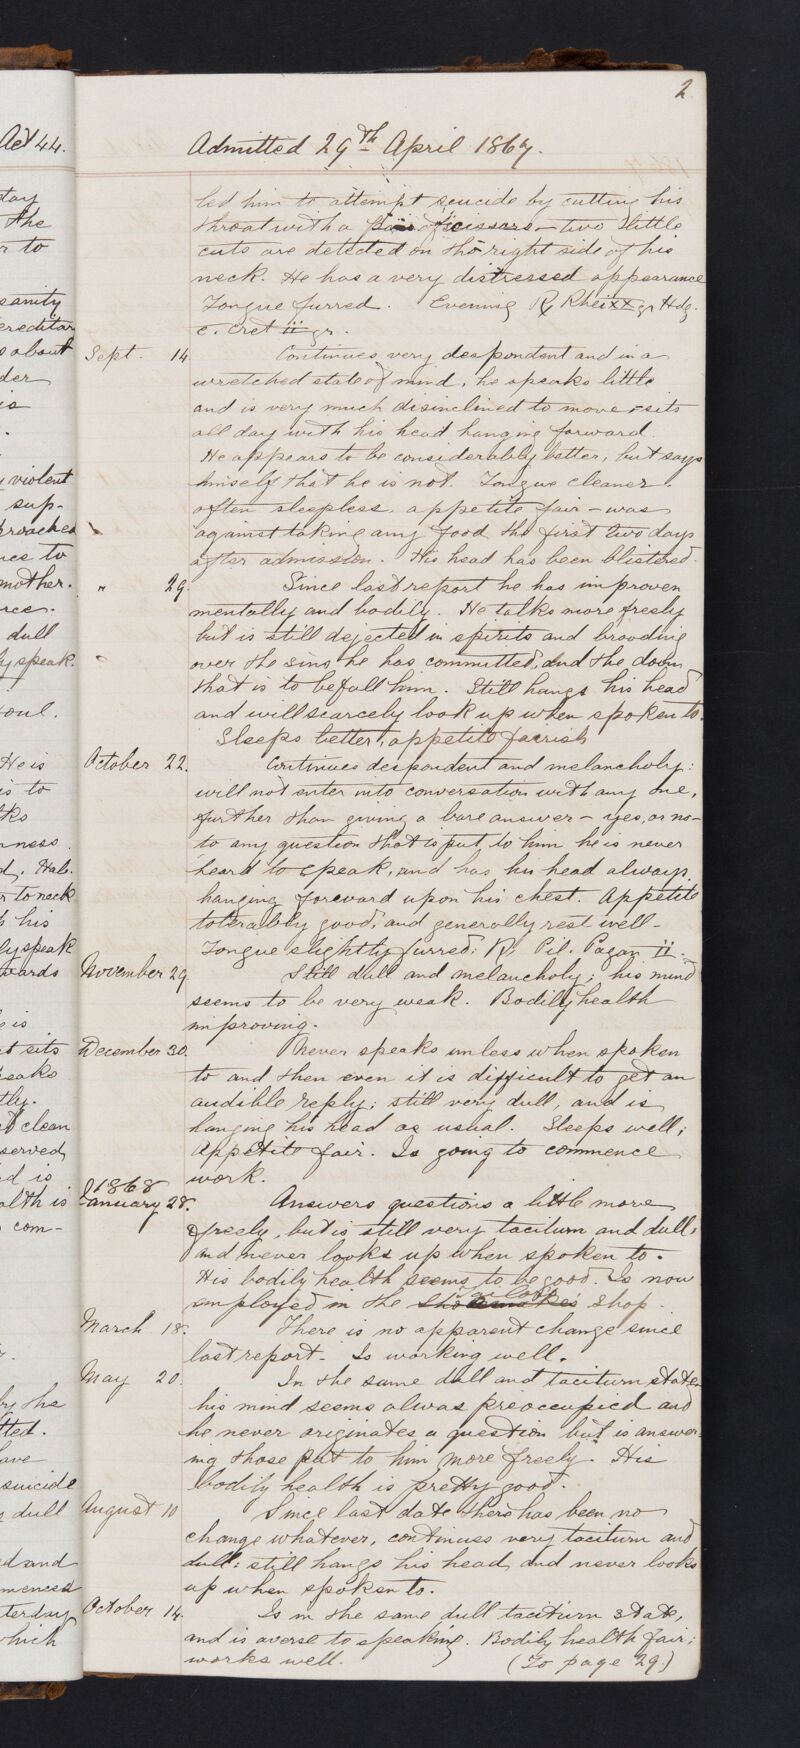 2
Act 44.
Admitted 29th April 1867.
led him to attempt suicide by cutting his
throat with a pair of scissors – two little
cuts are detected on the right side of his
neck. He has a very distressed appearance
Tongue furred. Evening Rx Rhei xx gr Hdg.
c. Cret ii gr.
Sept. 14 Continues very despondent and in a
wretched state of mind, he speaks little
and is very much disinclined to move – sits
all day with his head hanging forward.
He appears to be considerably better, but says
himself that he is not. Tongue cleaner.
often sleepless. appetite fair – was
against taking any food the first two days
after admission. His head has been blistered.
" 29. Since last report he has improven
mentally and bodily. He talks more freely
but is still dejected in spirits and brooding
over the sins he has committed, and the doom
that is to befall him. Still hangs his head
and will scarcely look up when spoken to.
Sleeps better, appetite fairish
October 22. Continues despondent and melancholy:
will not enter into conversation with any one,
further than giving a bare answer – yes, or no –
to any question that is put to him he is never
heard to speak, and has his head always
hanging foreward upon his chest. Appetite
tolerably good, and generally rest well –
Tongue slightly furred: Rx Pil. Pagan ii.
November 29 Still dull and melancholy; his mind
seems to be very weak. Bodily health
improving.
December 30. Never speaks unless when spoken
to and then even it is difficult to get an
audible reply; still very dull, and is
hanging his head as usual. Sleeps well;
Appetite fair. Is going to commence
work.
1868
January 28. Answers questions a little more
freely, but is still very taciturn and dull,
and never looks up when spoken to.
His bodily health seems to be good. Is now
tailors
employed in the shoemakers shop.
March 18. There is no apparent change since
last report. Is working well.
May 20. In the same dull and taciturn state,
his mind seems alwas preoccupied and
he never originates a question but is answer-
ing those put to him more freely. His
bodily health is pretty good.
August 10 Since last date there has been no
change whatever, continues very taciturn and
dull: still hangs his head and never looks
up when spoken to.
October 14. Is in the same dull taciturn state,
and is averse to speaking. Bodily health fair;
works well. (To page 29.)